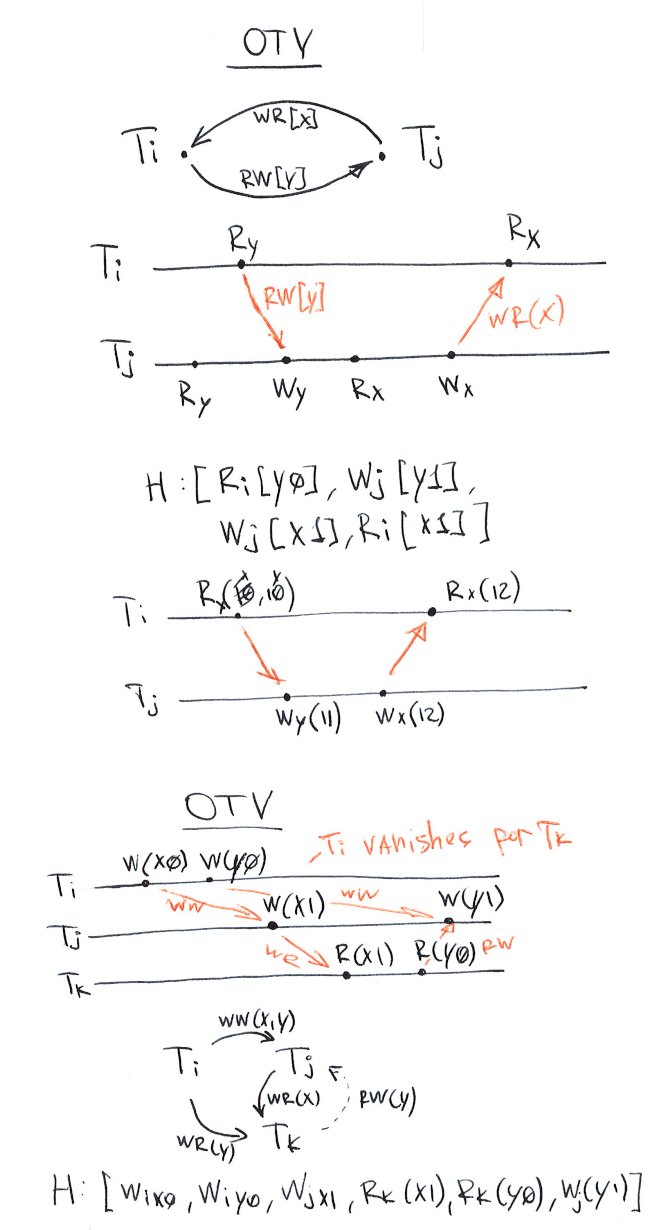 OTV
WR[X]
Ti Tj
RW[Y]
Ry Rx
Ti
RW[y] WR(X)
Tj
Ry Wy Rx Wx
H:[Ri[Yø], Wj[Y1],
Wj[X1], Ri[X1]]
Ti Rx( ,10) Rx(12)
Tj
Wy(11) Wx(12)
OTV
Ti VANishes for Tk
W(Xø) W(Yø)
Ti
WW W(X1) WW W(Y1)
Tj
WR R(X1) R(Yø) RW
Tk
WW(X,Y)
Ti Tj
WR(X) RW(Y)
WR(Y) Tk
H: [WiXø, WiYø, WjX1, Rk(X1), Rk(Yø), Wj(Y1)]